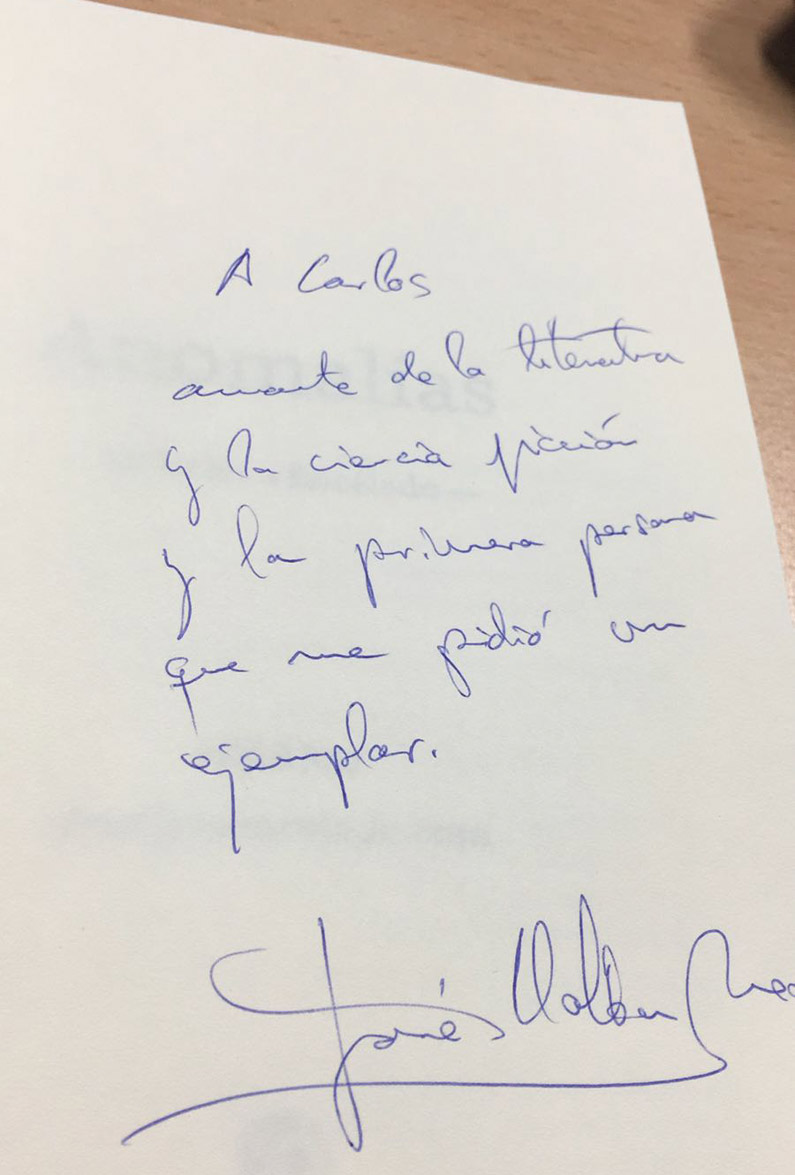 A Carlos
amante de la literatura
y la ciencia ficción
y la primera persona
que me pidió un
ejemplar.
Anomalías